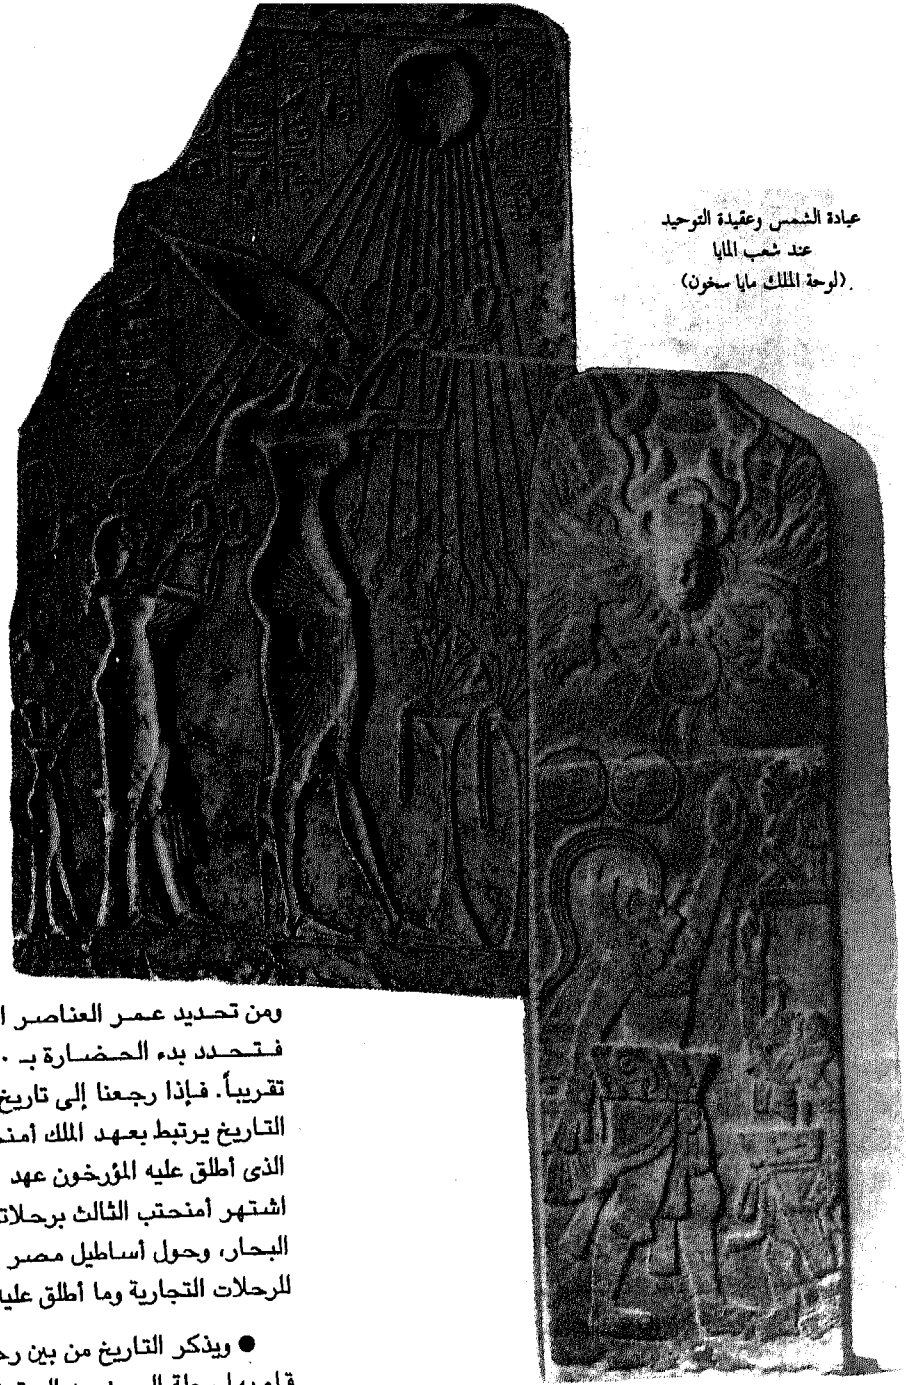 عبادة الشمس وعقيدة التوحيد
عند شعب المايا
(لوحة الملك مايا سخون).
ومن تحديد عمر العناصر ا
فتتحدد بدء الحضارة بـ ٠
تقريباً. فإذا رجعنا إلى تاريخ
التاريخ يرتبط بعهد الملك أمنح
الذى أطلق عليه المؤرخون عهد
اشتهر أمنحتب الثالث برحلات
البحار، وحول أساطيل مصر
للرحلات التجارية وما أطلق عليه
● ويذكر التاريخ من بين رح